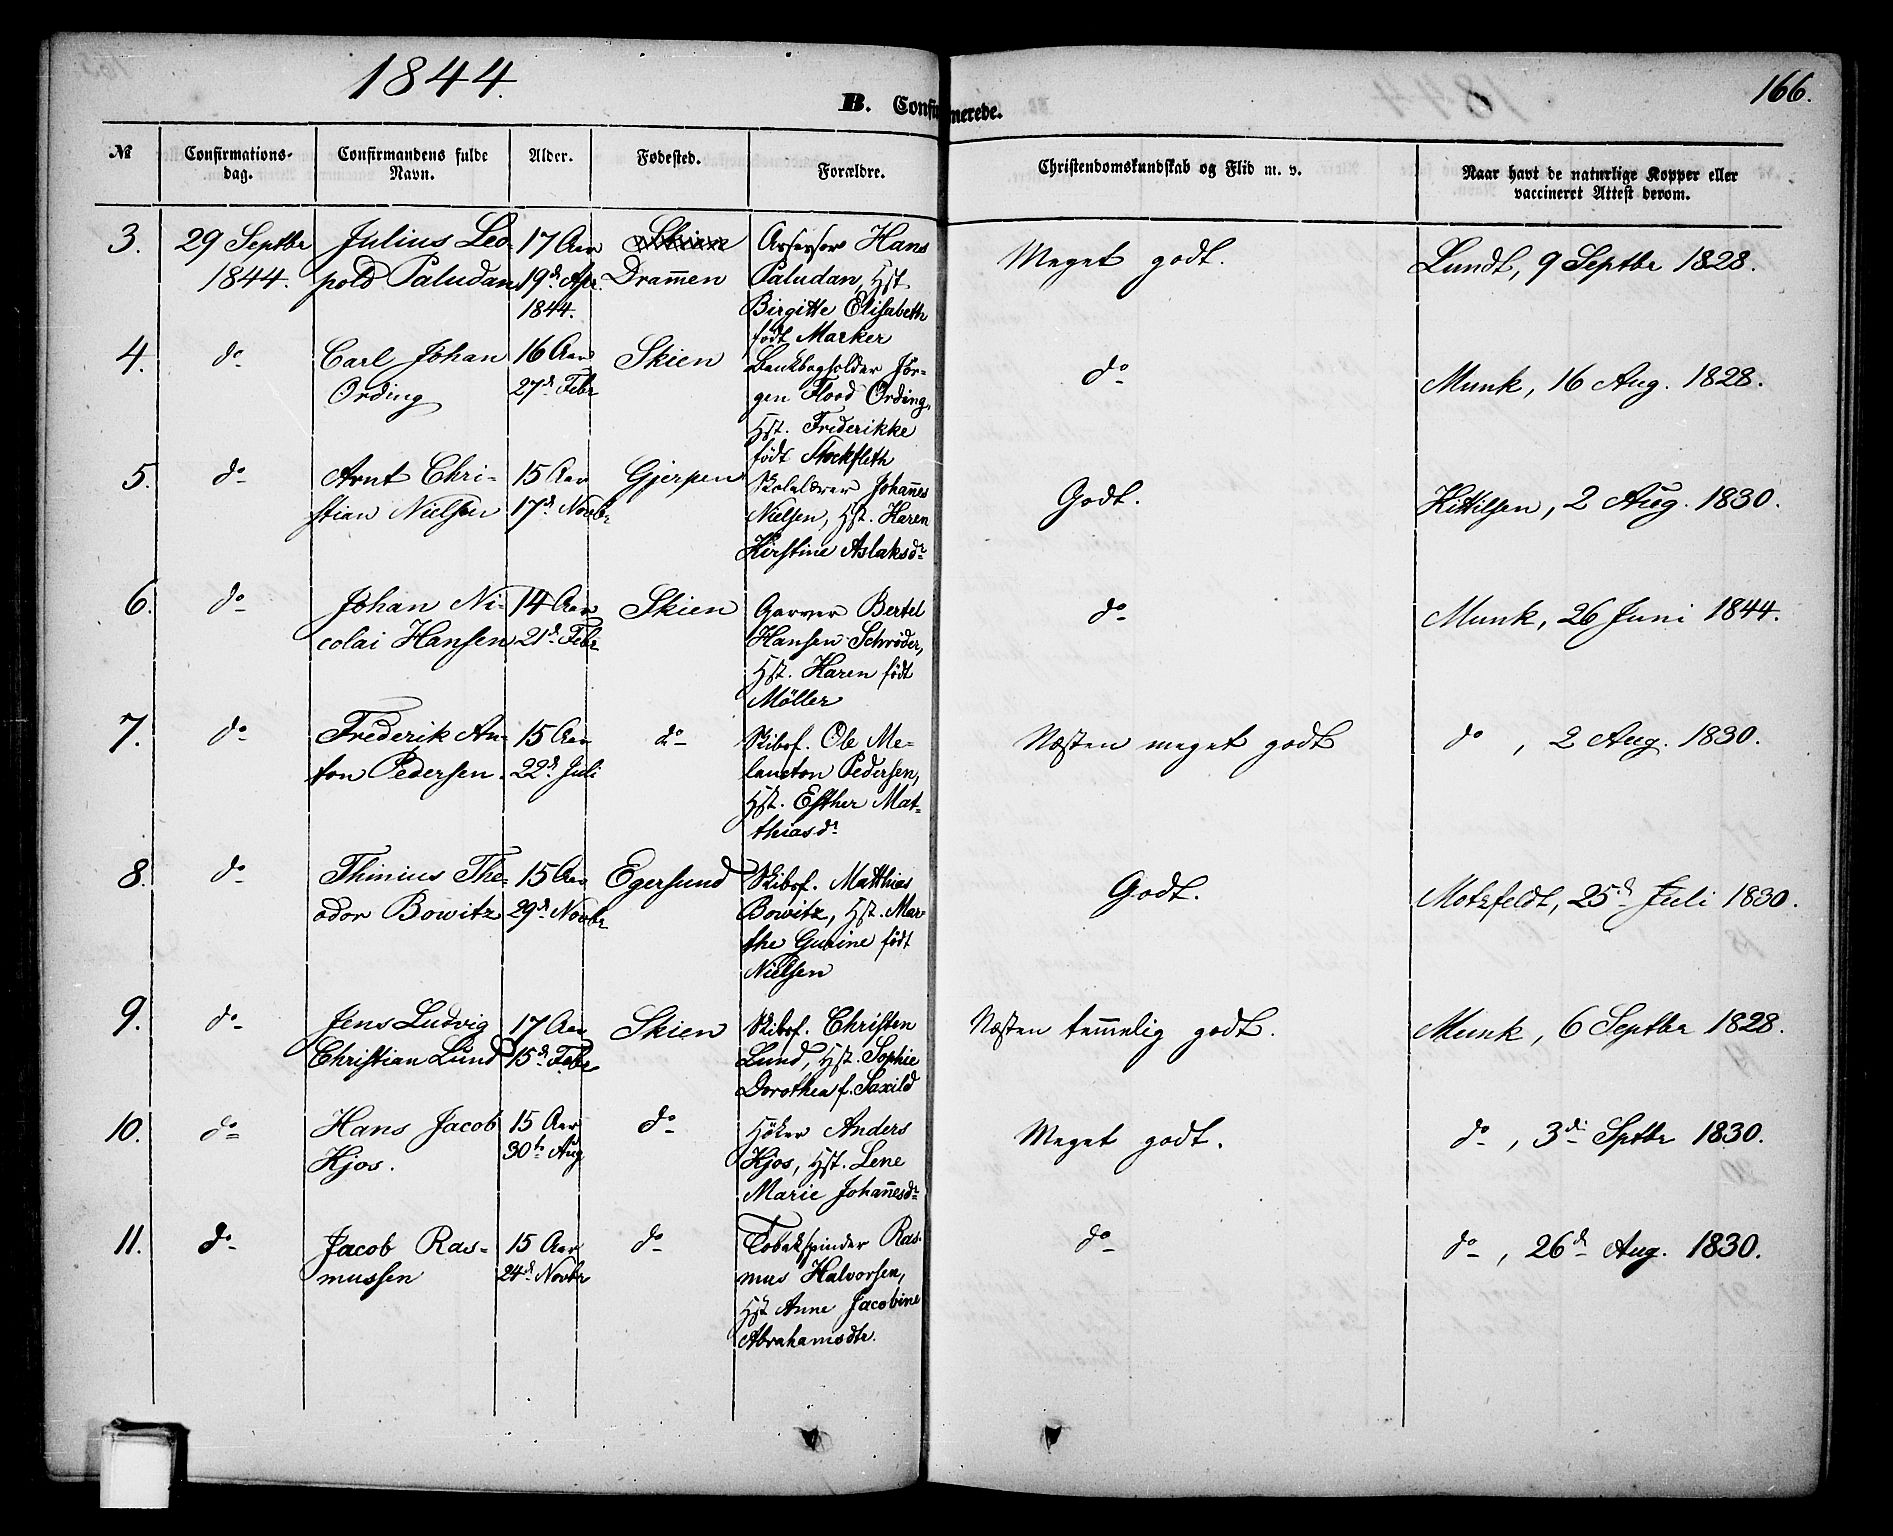 1844.
166.
B. Confirmerede.
№
Confirmations-
dag.
Confirmandens fulde
Navn.
Alder.
Fødested.
Forældre.
Christendomskundskab og Flid m. v.
Naar havt de naturlige Kopper eller
vaccineret Attest derom.
3.
29 Septbr
1844.
Julius Leo-
pold Paludan
17 Aar
19d Apr.
1844.
Skien
Drammen
Assessor Hans
Paludan, Hst.
Birgitte Elisabeth
født Marker
Meget godt.
Lundt, 9 Septbr 1828.
4.
do
Carl Johan
Ording
16 Aar
27d Febr
Skien
Bankbogholder Jör-
gen Flood Ording,
Hst. Frederikke
født Stockfleth
do
Munk, 16 Aug. 1828.
5.
do
Arnt Chri-
stian Nielsen
15 Aar
17d Novbr
Gjerpen
Skolelærer Johannes
Nielsen, Hst. Karen
Kirstine Aslaksdr
Godt.
Kittilsen, 2 Aug. 1830.
6.
do
Johan Ni-
colai Hansen
14 Aar
21d Febr
Skien
Garver Bertel
Hansen Schrøder,
Hst. Karen født
Møller
do
Munk, 26 Juni 1844.
7.
do
Frederik An-
ton Pedersen.
15 Aar
22d Juli
do
Skibsf. Ole Me-
lancton Pedersen,
Hst. Esther Mat-
thiasdr
Næsten meget godt
do, 2 Aug. 1830.
8.
do
Thinius The-
odor Bowitz
15 Aar
29d Novbr
Egersund
Skibsf. Matthias
Bowitz, Hst. Mar-
the Gurine født
Nielsen
Godt.
Motzfeldt, 25d Juli 1830.
9.
do
Jens Ludvig
Christian Lund
17 Aar
15d Febr
Skien
Skibsf. Christen
Lund, Hst. Sophie
Dorothea f. Saxild
Næsten temmelig godt.
Munk, 6 Septbr 1828.
10.
do
Hans Jacob
Kjos.
15 Aar
30te Aug
do
Høker Anders
Kjos, Hst. Lene
Marie Johannesdr
Meget godt.
do, 3di Sptbr 1830.
11.
do
Jacob Ras-
mussen
15 Aar
24d Novbr
do
Tobakspinder Ras-
mus Halvorsen,
Hst Anne Jacobine
Abrahamsdtr.
do
do, 26d Aug. 1830.